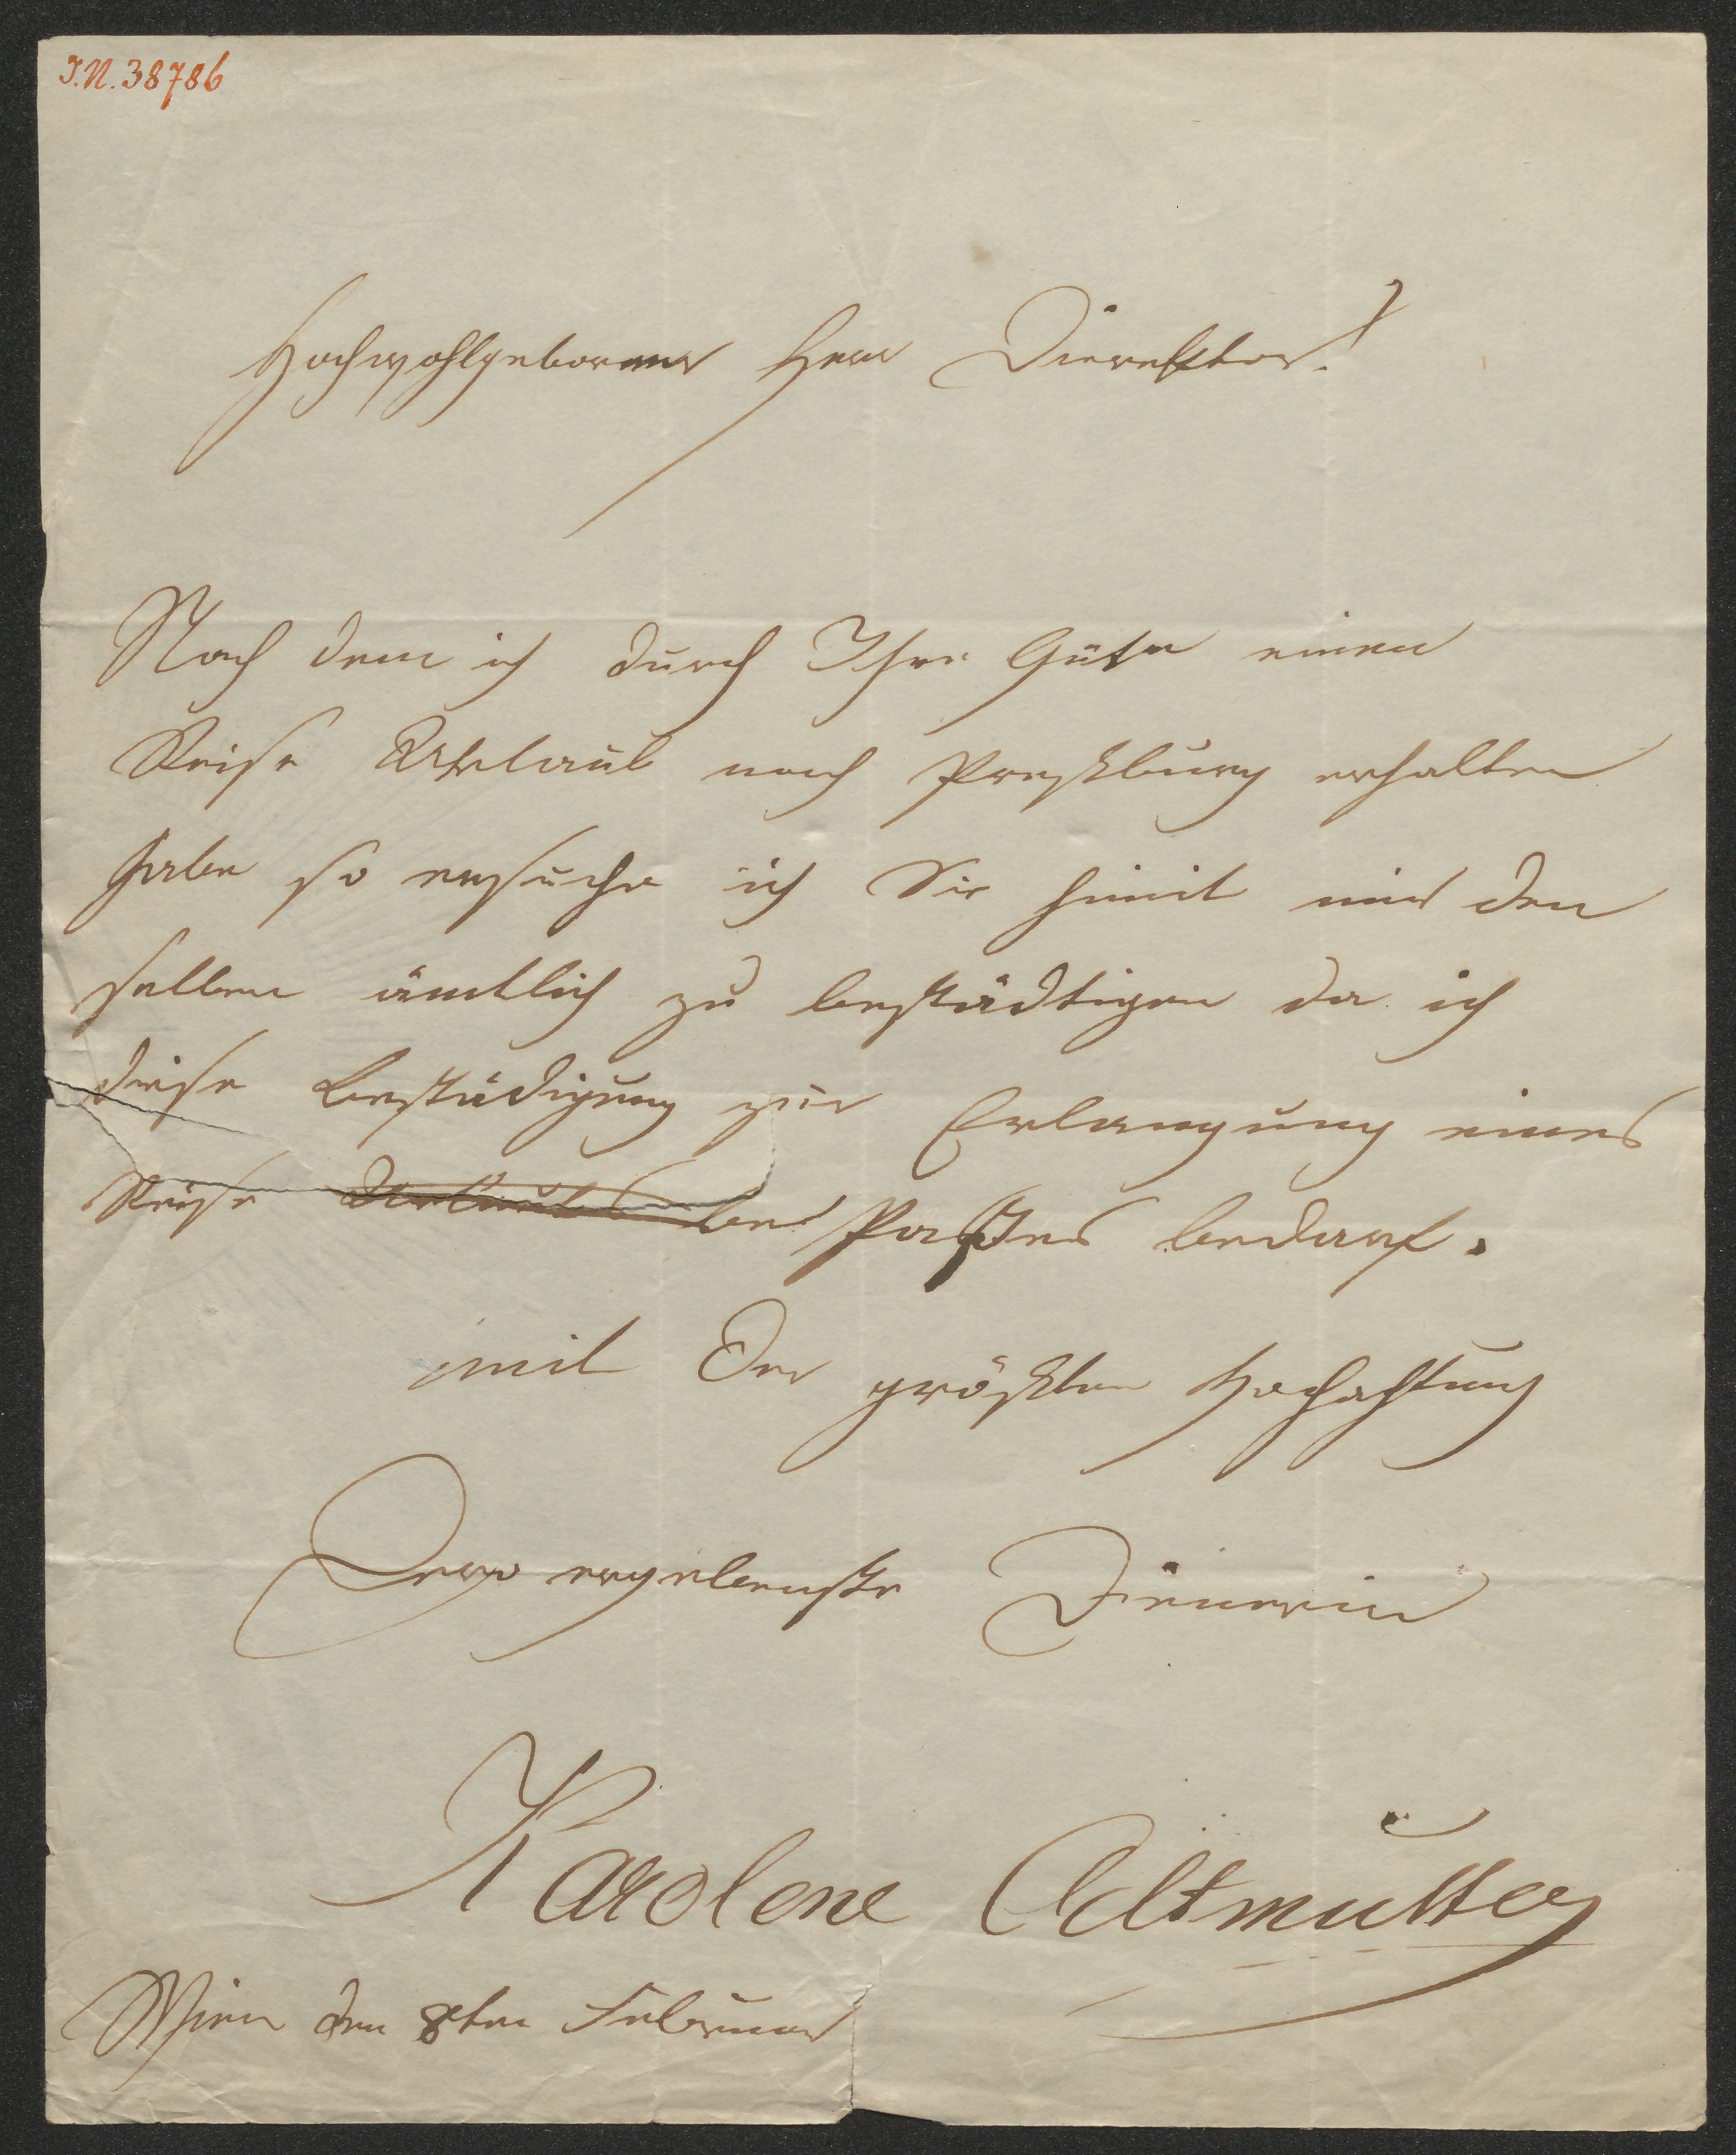 I.N. 38786
Hochwohlgeborner Herr Dierektor!
Nach dem ich durch Ihre Güte einen
Reise Urlaub nach Preßburg erhalten
habe so ersuche ich Sie himit mir den
selben ämtlich zu bestädtigen da ich
diese Bestädigung zur Erlangung eines
Reise Passes bedarf.
mit der größten Hochachtung
Dero ergebenste Dienerin
Karolene Altmutter
Wien den 8ten Februar